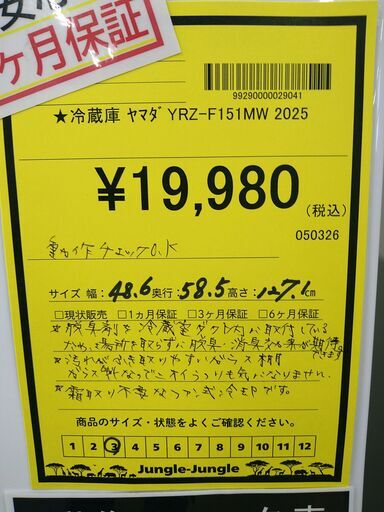 ヶ月保証
99290000029041
★冷蔵庫 ヤマダ YRZ-F151MW 2025
¥19,980
(税込)
050326
動作チェックO.K
サイズ 幅:48.6 奥行:58.5 高さ:127.1cm
□現状販売 □1ヵ月保証 □3ヶ月保証 □6ヶ月保証
*脱臭剤を冷蔵室ダクト内に取付している
ため、場所を取らずに脱臭・消臭効果が期待できます。
*汚れがふき取りやすいガラス棚
ガラス製なのでニオイうつりも気になりません。
*霜取り不要なファン式冷却です。
商品のサイズ・状態をよくご確認ください。
1 2 3 4 5 6 7 8 9 10 11 12
Jungle-Jungle